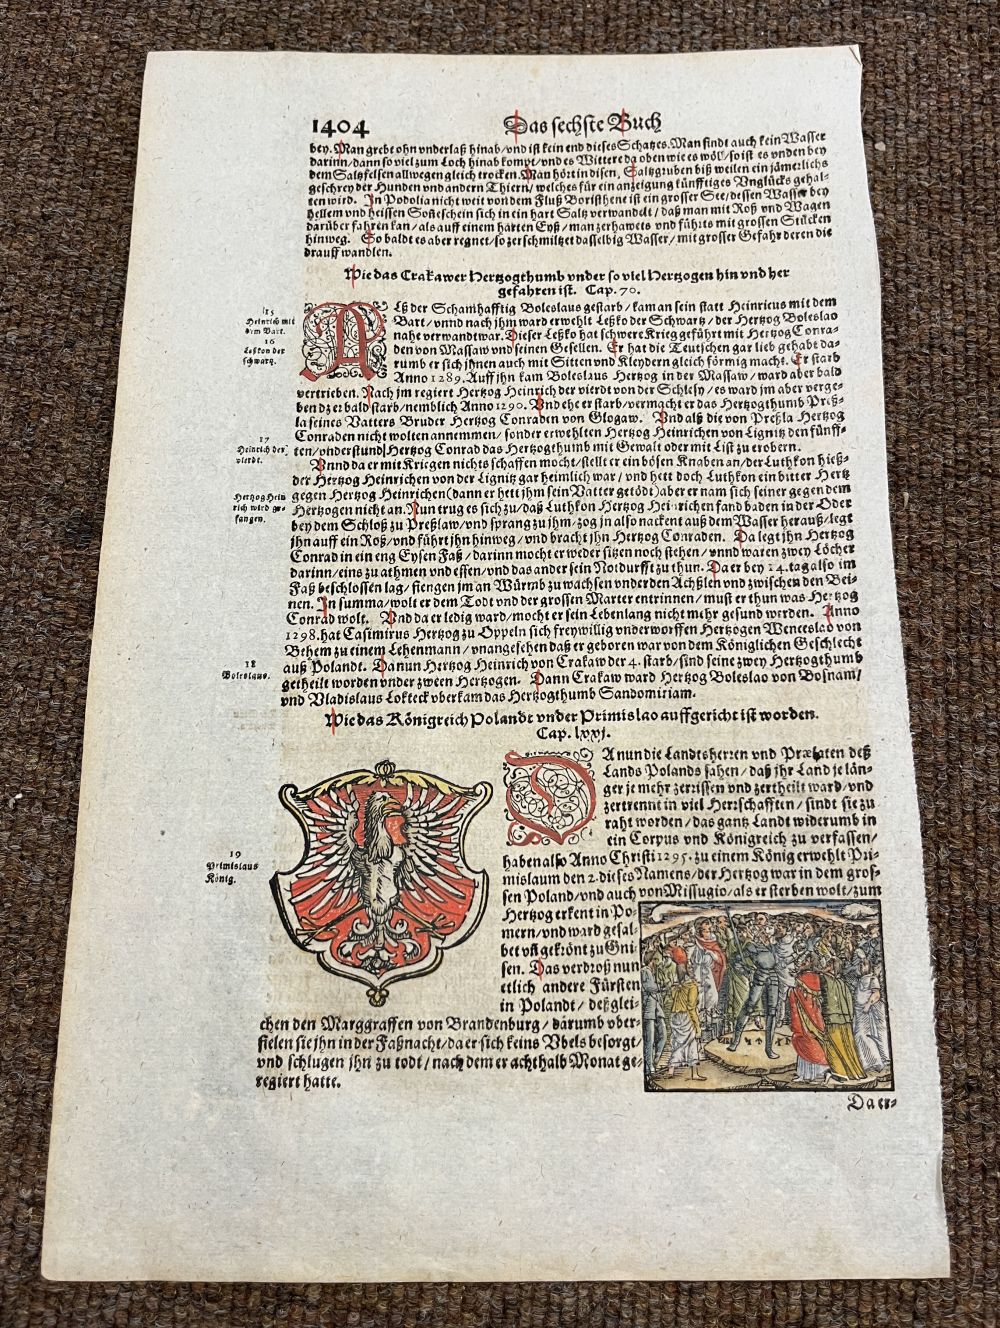 1404
Das sechste Buch
bey. Man grebt ohn vnderlaß hinab/vnd ist kein end dieses Schatzes. Man findt auch kein Wasser
darinn/dann so viel zum Loch hinab kompt/vnd es Wittere da oben wie es wöll/so ist es vnden bey
dem Saltzfelsen allwegen gleich trocken. Man hört in disen Saltzgruben biß weilen ein jämerlichs
geschrey der Hunden vnd andern Thiern/welches für ein anzeigung künfftiges Vnglücks gehal-
ten wird. In Podolia nicht weit von dem Fluß Boristhene ist ein grosser See/dessen Wasser bey
hellem vnd heissen Soñeschein sich in ein hart Saltz verwandelt/daß man mit Roß vnd Wagen
darüber fahren kan/als auff einem harten Eyß/man zerhawets vnd führts mit grossen Stücken
hinweg. So baldt es aber regnet/so zerschmiltzet dasselbig Wasser/mit grosser Gefahr deren die
drauff wandlen.
Wie das Crakawer Hertzogthumb vnder so viel Hertzogen hin vnd her
gefahren ist. Cap. 70.
15
Heinrich mit
dem Bart.
16
Leßkon der
schwartz.
ALß der Schamhafftig Boleslaus gestarb/kam an sein statt Heinricus mit dem
Bart/vnnd nach jhm ward erwehlt Leßko der Schwartz/der Hertzog Boleslao
nahe verwandt war. Dieser Leßko hat schwere Krieg geführt mit Hertzog Conra-
den von Massaw vnd seinen Gesellen. Er hat die Teutschen gar lieb gehabt da-
rumb er sich jhnen auch mit Sitten vnd Kleydern gleich förmig macht. Er starb
Anno 1289. Auff jhn kam Boleslaus Hertzog in der Massaw/ward aber bald
vertrieben. Nach jm regiert Hertzog Heinrich der vierdt von der Schlesy/es ward jm aber verge-
ben dz er bald starb/nemblich Anno 1290. Vnd ehe er starb/vermacht er das Hertzogthumb Preß-
la seines Vatters Bruder Hertzog Conraden von Glogaw. Vnd alß die von Preßla Hertzog
Conraden nicht wolten annemmen/sonder erwehlten Hertzog Heinrichen von Lignitz den fünff-
ten/vnderstund Hertzog Conrad das Hertzogthumb mit Gewalt oder mit List zu erobern.
17
Heinrich der
vierdt.
Vnnd da er mit Kriegen nichts schaffen mocht/stellt er ein bösen Knaben an/der Luthkon hieß-
der Hertzog Heinrichen von der Lignitz gar heimlich war/vnd hett doch Luthkon ein bitter Hertz
gegen Hertzog Heinrichen (dann er hett jhm sein Vatter getödt) aber er nam sich seiner gegen dem
Hertzogen nicht an. Nun trug es sich zu/daß Luthkon Hertzog Heinrichen fand baden in der Oder
bey dem Schloß zu Preßlaw/vnd sprang zu jhm/zog jn also nackent auß dem Wasser herauß/legt
jhn auff ein Roß/vnd führt jhn hinweg/vnd bracht jhn Hertzog Conraden. Da legt jhn Hertzog
Conrad in ein eng Eysen Faß/darinn mocht er weder sitzen noch stehen/vnnd waren zwey Löcher
darinn/eins zu athmen vnd essen/vnd das ander sein Notdurfft zu thun. Da er bey 14. tag also im
Faß beschlossen lag/fiengen jm an Würmb zu wachsen vnder den Achßlen vnd zwischen den Bei-
nen. In summa/wolt er dem Todt vnd der grossen Marter entrinnen/must er thun was Hertzog
Conrad wolt. Vnd da er ledig ward/mocht er sein Lebenlang nicht mehr gesund werden. Anno
1298. hat Casimirus Hertzog zu Oppeln sich freywillig vnderworffen Hertzogen Wenceslao von
Behem zu einem Lehenmann/vnangesehen daß er geboren war von dem Königlichen Geschlecht
auß Polandt. Da nun Hertzog Heinrich von Crakaw der 4. starb/sind seine zwey Hertzogthumb
getheilt worden vnder zween Hertzogen. Dann Crakaw ward Hertzog Boleslao von Bosnam/
vnd Vladislaus Lokteck vberkam das Hertzogthumb Sandomiriam.
Hertzog Hein
rich wird ge-
fangen.
18
Boleslaus.
Wie das Königreich Polandt vnder Primislao auffgericht ist worden.
Cap. lxxj.
DA nun die Landtsherren vnd Prælaten deß
Lands Polands sahen/daß jhr Land je län-
ger je mehr zerrissen vnd zertheilt ward/vnd
zertrennt in viel Herrschafften/sindt sie zu
raht worden/das gantz Landt widerumb in
ein Corpus vnd Königreich zu verfassen/
haben also Anno Christi 1295. zu einem König erwehlt Pri-
mislaum den 2. dieses Namens/der Hertzog war in dem gros-
sen Poland/vnd auch von Missugio/als er sterben wolt/zum
19
Primislaus
König.
Hertzog erkent in Po-
mern/vnd ward gesal-
bet vñ gekrönt zu Gni-
sen. Das verdroß nun
etlich andere Fürsten
in Polandt/deßglei-
chen den Marggraffen von Brandenburg/darumb vber-
fielen sie jhn in der Faßnacht/da er sich keins Vbels besorgt/
vnd schlugen jhn zu todt/nach dem er achthalb Monat ge-
regiert hatte.
Da er-